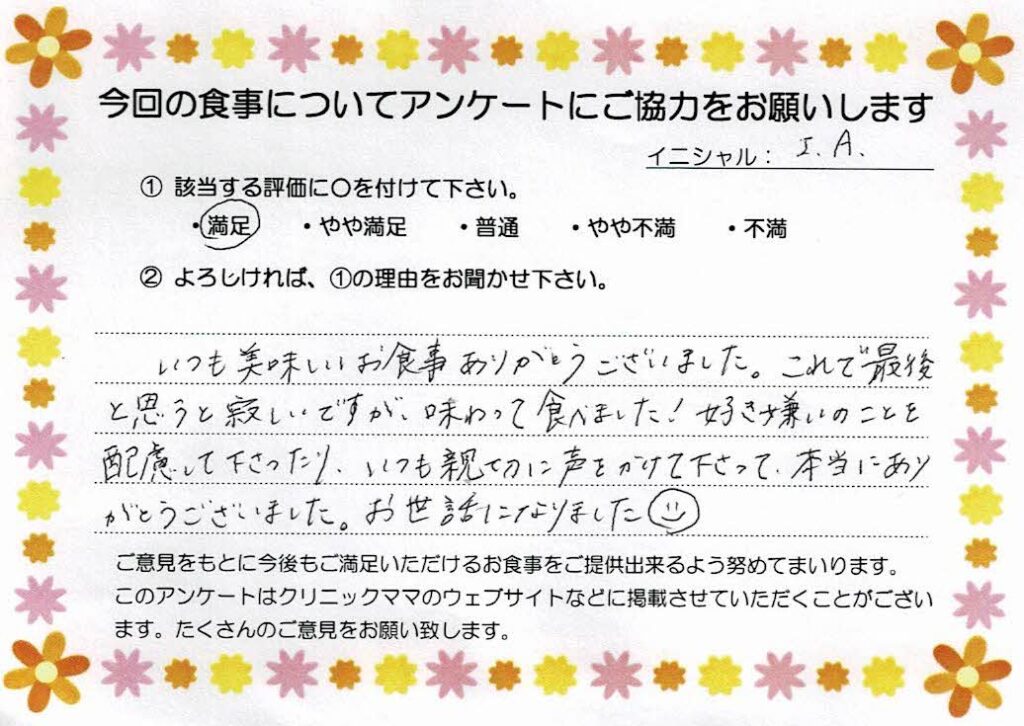 今回の食事についてアンケートにご協力をお願いします
イニシャル： I. A.
① 該当する評価に○を付けて下さい。
・満足 ・やや満足 ・普通 ・やや不満 ・不満
② よろしければ、①の理由をお聞かせ下さい。
いつも美味しいお食事ありがとうございました。これで最後
と思うと寂しいですが、味わって食べました！好き嫌いのことを
配慮して下さったり、いつも親切に声をかけて下さって、本当にあり
がとうございました。お世話になりました
ご意見をもとに今後もご満足いただけるお食事をご提供出来るよう努めてまいります。
このアンケートはクリニックママのウェブサイトなどに掲載させていただくことがござい
ます。たくさんのご意見をお願い致します。